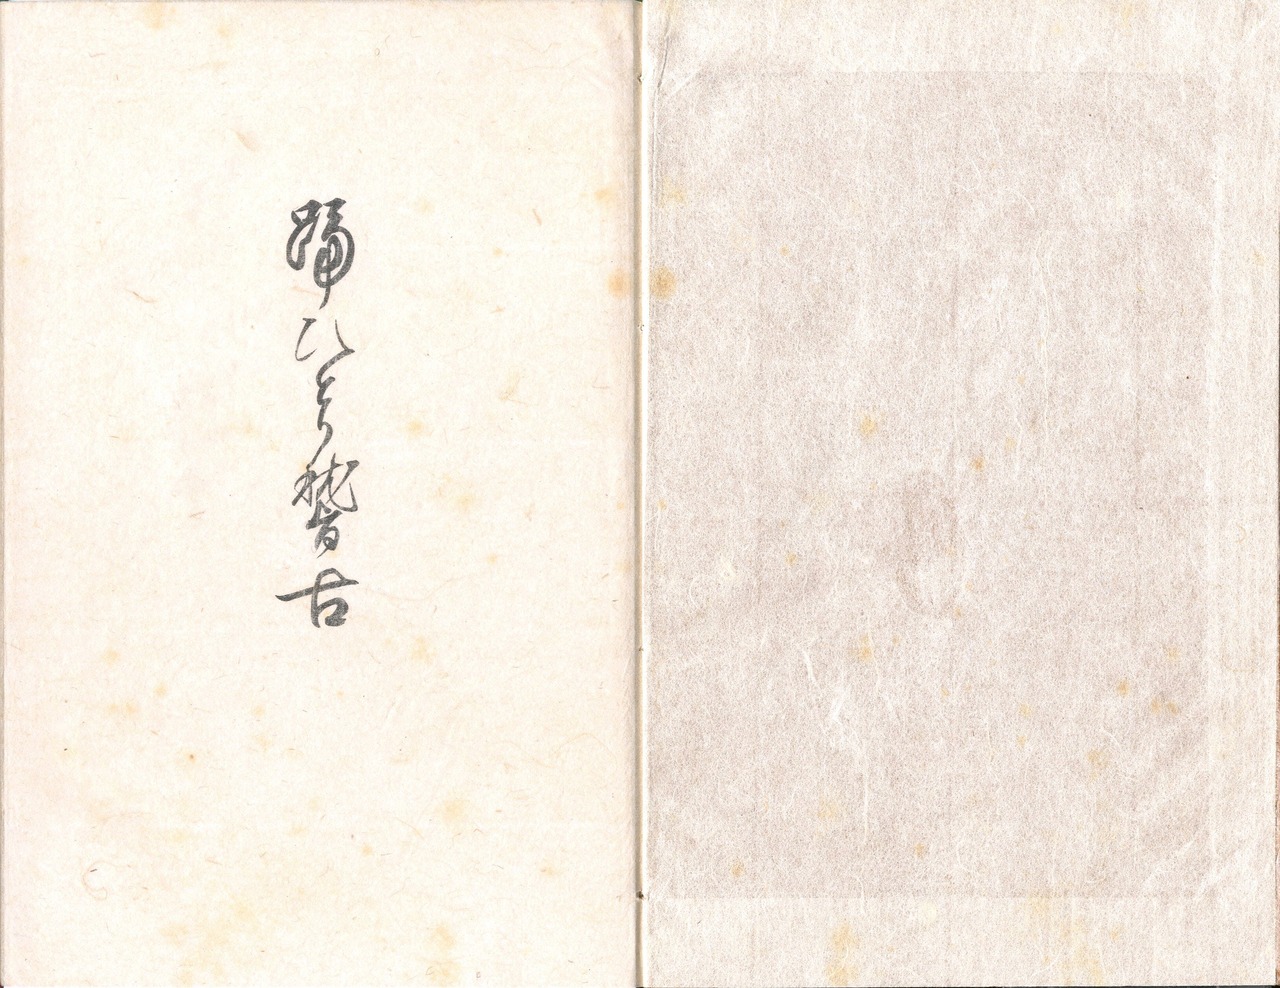 踊ひとり稽古